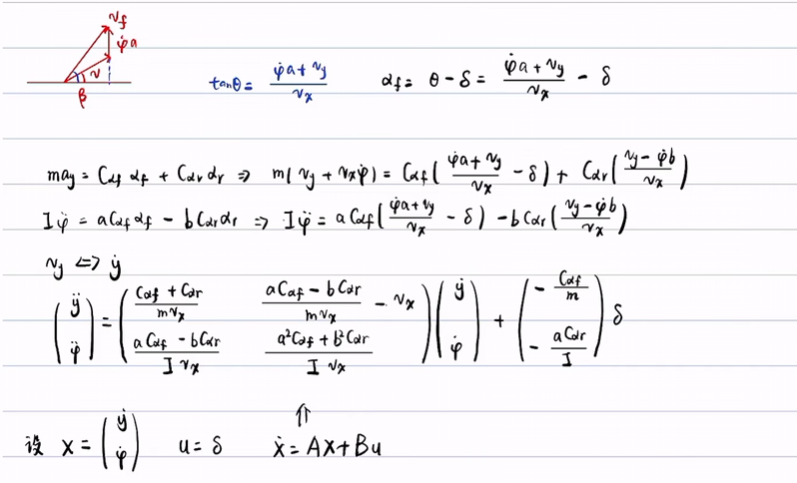 v_f
φ̇a
v
β
tanθ = (φ̇a + v_y)/v_x    α_f = θ - δ = (φ̇a + v_y)/v_x - δ
ma_y = C_αf α_f + C_αr α_r ⇒ m(v_y + v_xφ̇) = C_αf((φ̇a + v_y)/v_x - δ) + C_αr((v_y - φ̇b)/v_x)
Iφ̈ = aC_αf α_f - bC_αr α_r ⇒ Iφ̈ = aC_αf((φ̇a + v_y)/v_x - δ) - bC_αr((v_y - φ̇b)/v_x)
v_y ⇔ ẏ
(ÿ; φ̈) = ((C_αf + C_αr)/(mv_x), (aC_αf - bC_αr)/(mv_x) - v_x; (aC_αf - bC_αr)/(Iv_x), (a²C_αf + b²C_αr)/(Iv_x)) (ẏ; φ̇) + (-C_αf/m; -aC_αr/I) δ
⇑
设 X = (ẏ; φ̇)    u = δ    ẋ = AX + Bu